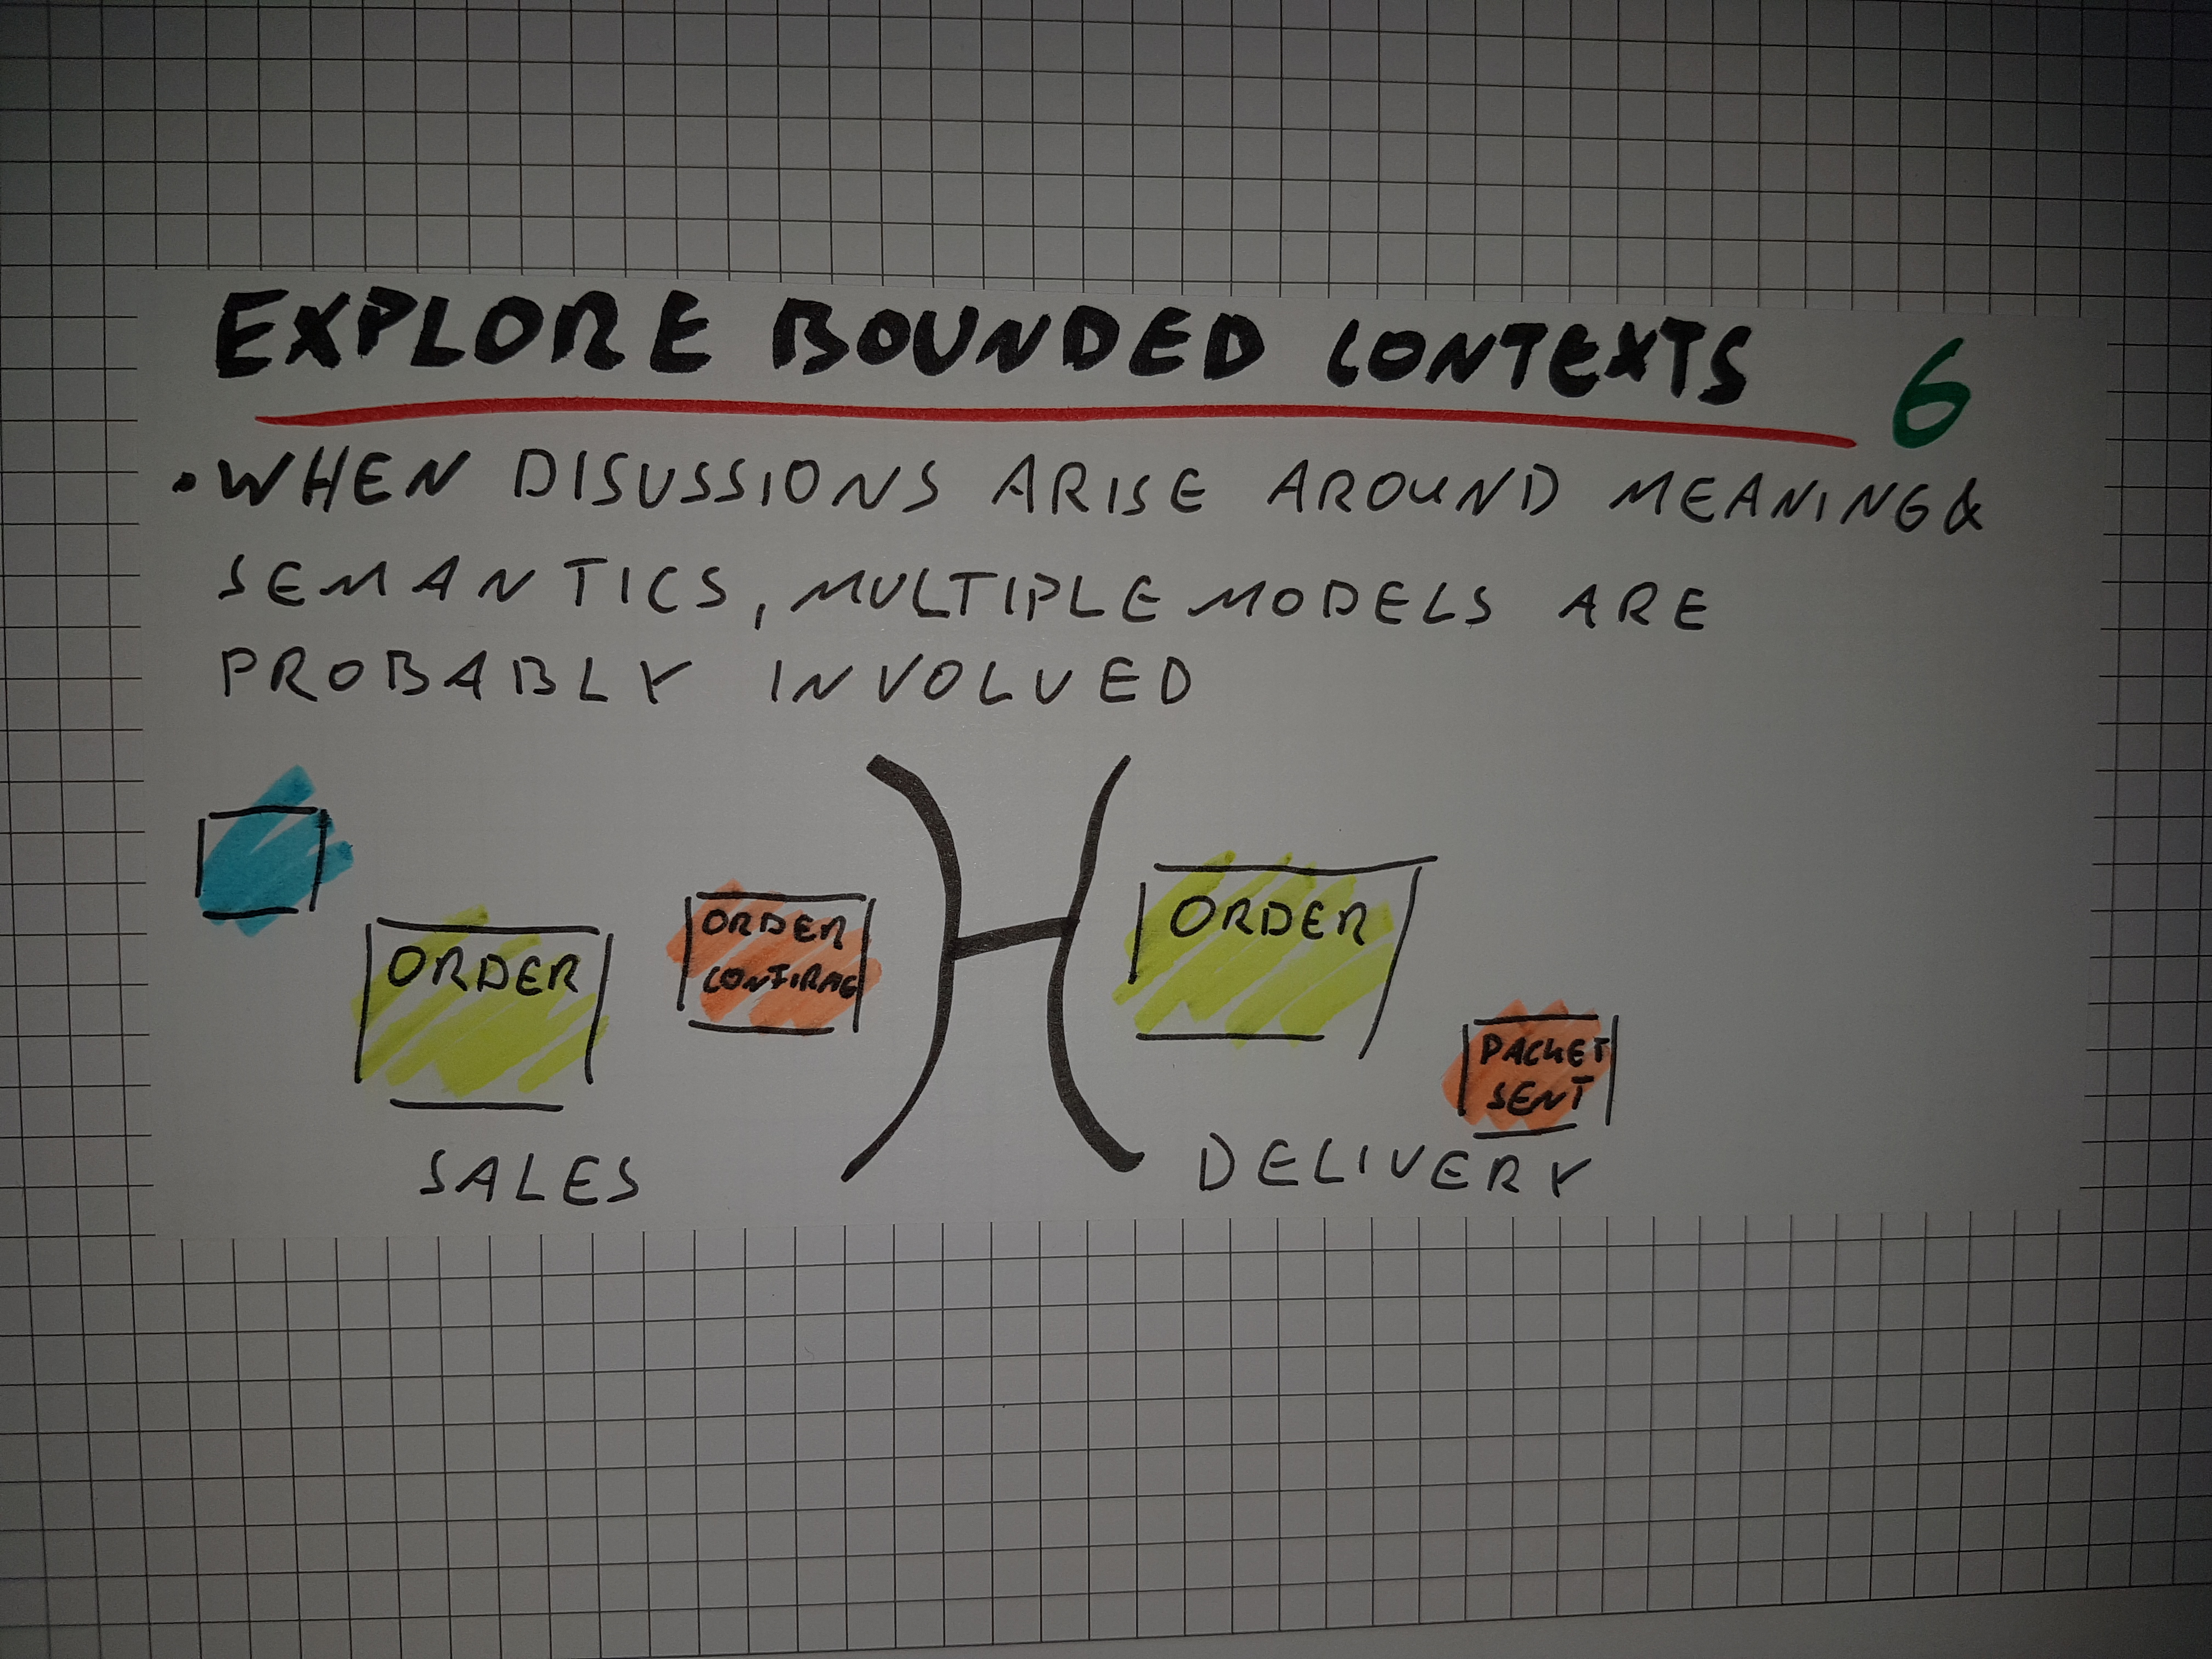 EXPLORE BOUNDED CONTEXTS
6
• WHEN DISUSSIONS ARISE AROUND MEANING &
SEMANTICS, MULTIPLE MODELS ARE
PROBABLY INVOLVED
ORDER
ORDER
CONFIRMED
ORDER
PACKET
SENT
SALES
DELIVERY